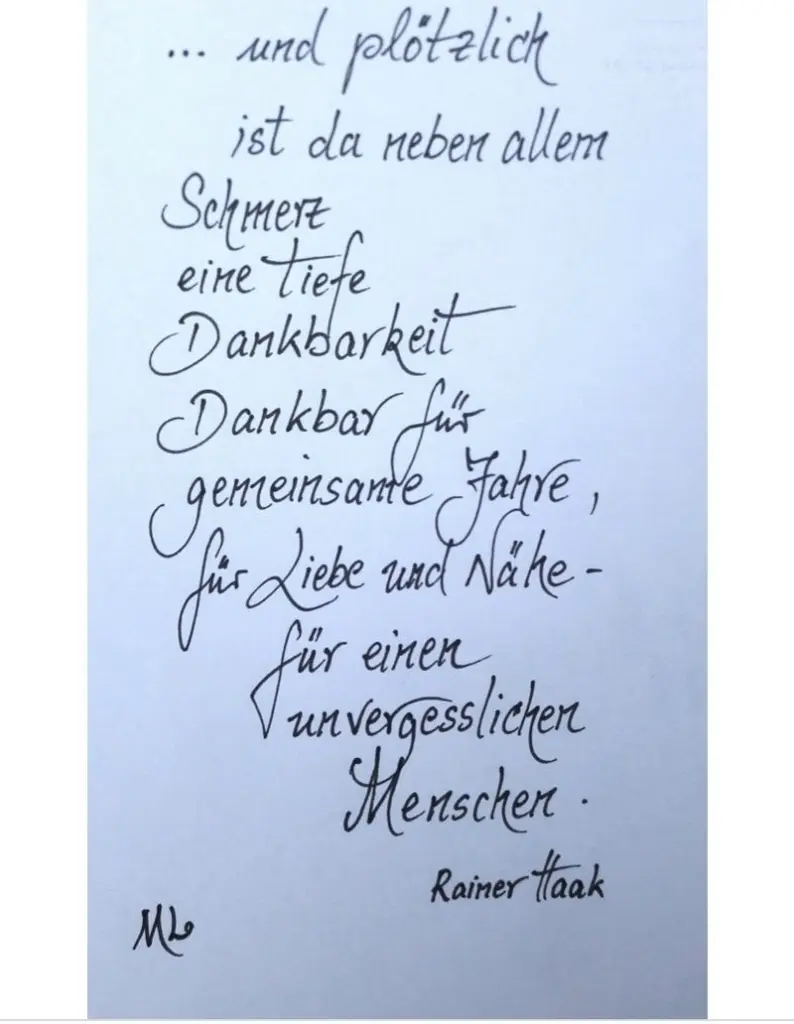 ... und plötzlich
ist da neben allem
Schmerz
eine tiefe
Dankbarkeit
Dankbar für
gemeinsame Jahre,
für Liebe und Nähe -
für einen
unvergesslichen
Menschen.
Rainer Haak
ML